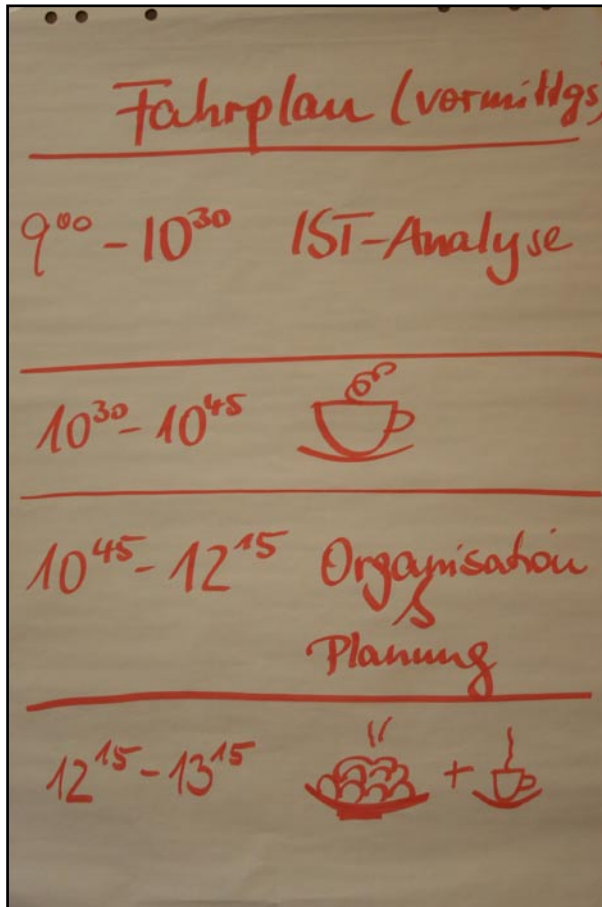 Fahrplan (vormittgs)
9⁰⁰ - 10³⁰ IST-Analyse
10³⁰ - 10⁴⁵
10⁴⁵ - 12¹⁵ Organisation
&
Planung
12¹⁵ - 13¹⁵ +